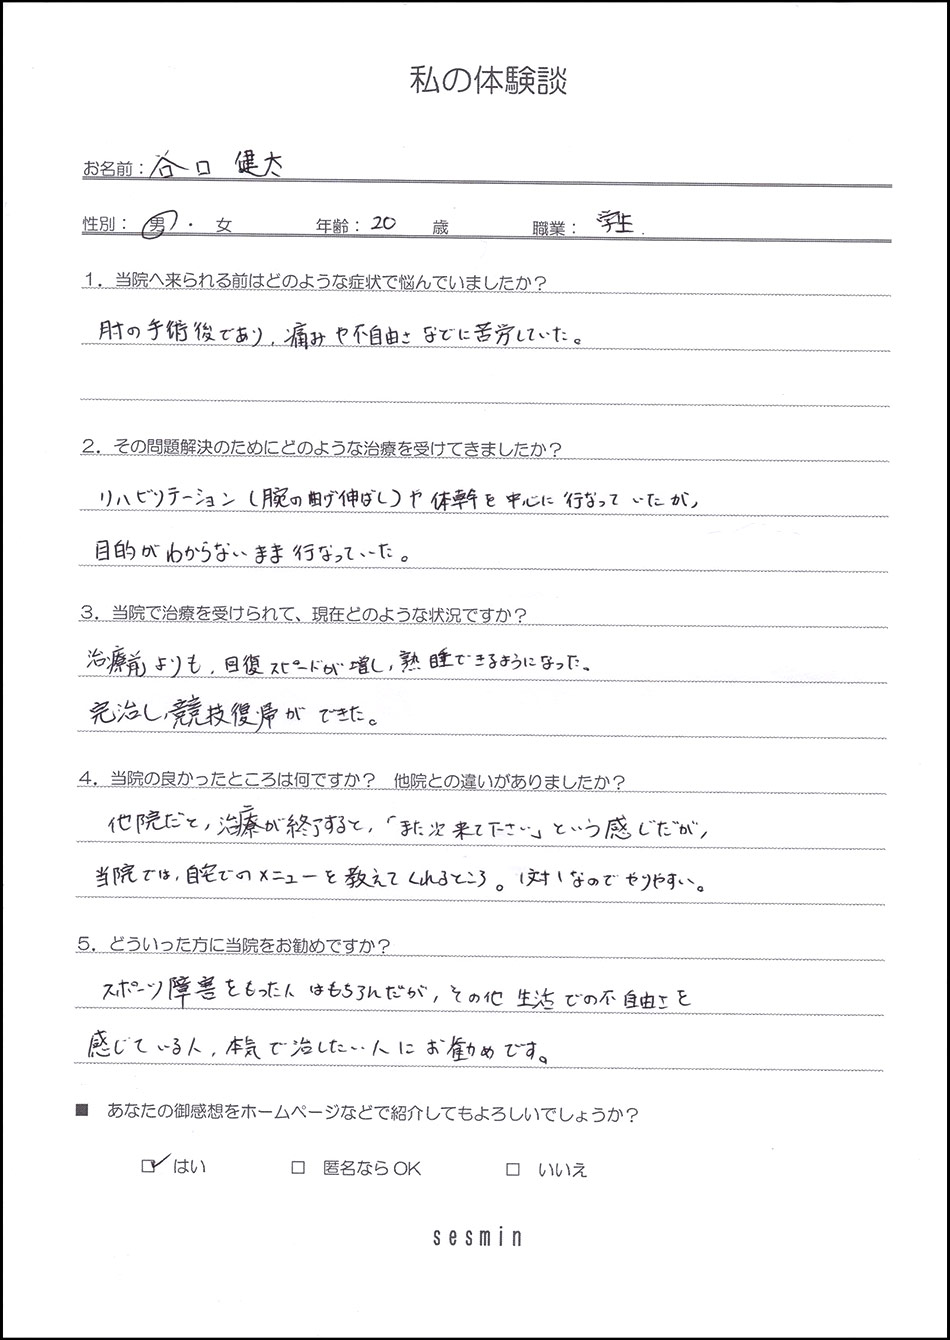 私の体験談
お名前：谷口 健太
性別： 男 ・ 女 年齢：20 歳 職業： 学生.
1．当院へ来られる前はどのような症状で悩んでいましたか？
肘の手術後であり、痛みや不自由さなどに苦労していた。
2．その問題解決のためにどのような治療を受けてきましたか？
リハビリテーション（腕の曲げ伸ばし）や体幹を中心に行なっていたが、
目的がわからないまま行なっていた。
3．当院で治療を受けられて、現在どのような状況ですか？
治療前よりも、回復スピードが増し、熟睡できるようになった。
完治し、競技復帰ができた。
4．当院の良かったところは何ですか？ 他院との違いがありましたか？
他院だと、治療が終了すると、「また次来て下さい」という感じだが、
当院では、自宅でのメニューを教えてくれるところ。1対1なのでやりやすい。
5．どういった方に当院をお勧めですか？
スポーツ障害をもった人はもちろんだが、その他生活での不自由さを
感じている人、本気で治したい人にお勧めです。
■ あなたの御感想をホームページなどで紹介してもよろしいでしょうか？
☑ はい □ 匿名ならOK □ いいえ
sesmin